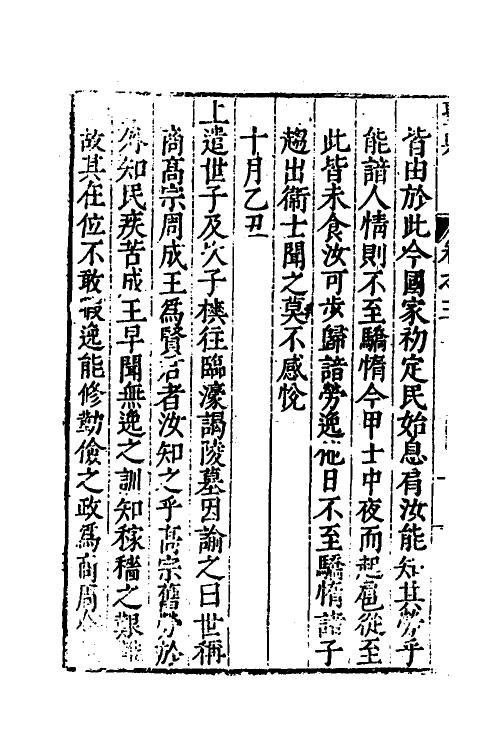 皆由於此今國家初定民始息肩汝能知其勞乎
能諳人情則不至驕惰今甲士中夜而起扈從至
此皆未食汝可步歸諳勞逸他日不至驕惰諸子
趨出衞士聞之莫不感恱
十月乙丑
上遣世子及次子樉往臨濠謁陵墓因諭之曰世稱
商髙宗周成王爲賢君者汝知之乎髙宗舊勞於
外知民疾苦成王早聞無逸之訓知稼穡之艱難
故其在位不敢暇逸能修勤儉之政爲商周